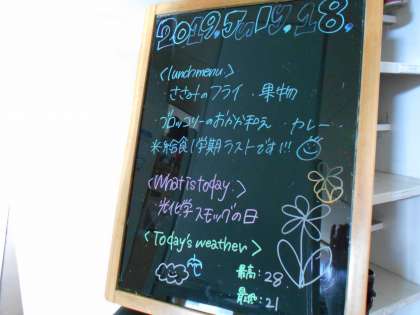 2019.7.17.18.
<lunch menu>
ささみのフライ・果物
ブロッコリーのおかか和え・カレー
※給食1学期ラストです!!!
<What is today>
光化学スモッグの日
<Today's weather>
最高:28
最低:21